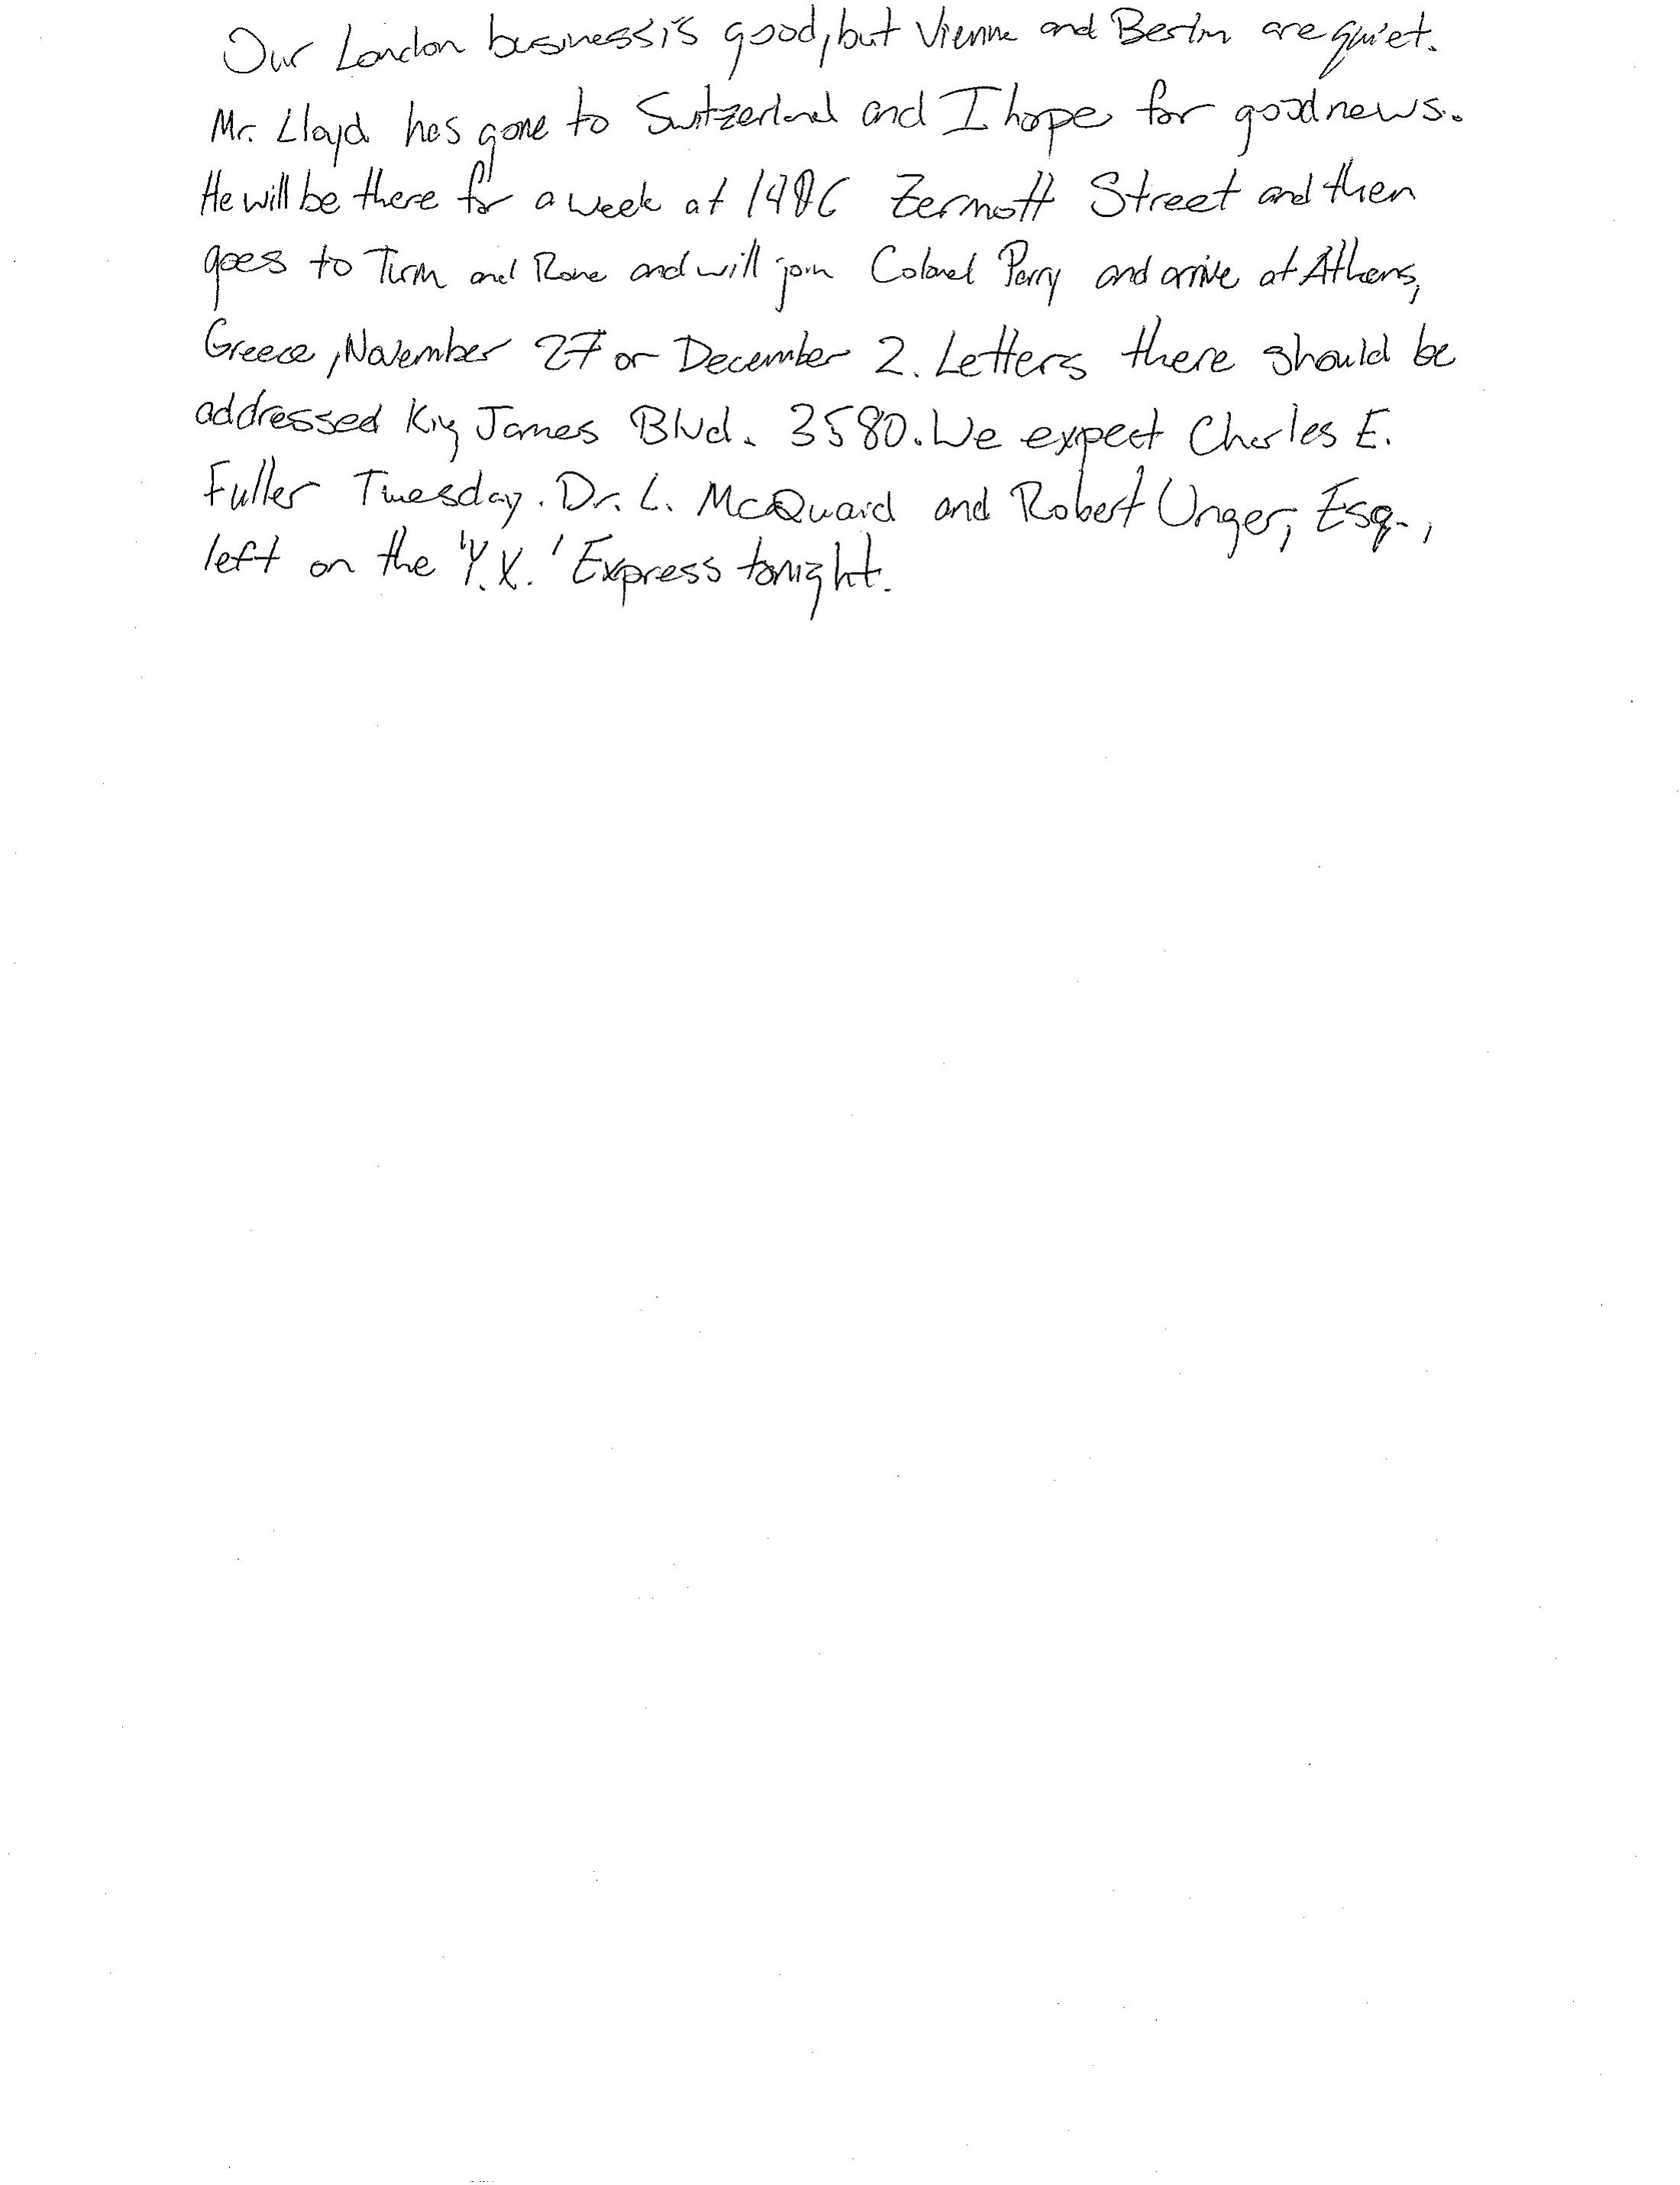 Our London business is good, but Vienna and Berlin are quiet.
Mr. Lloyd has gone to Switzerland and I hope for good news.
He will be there for a week at 1486 Zermott Street and then
goes to Turin and Rome and will join Colonel Parry and arrive at Athens,
Greece, November 27 or December 2. Letters there should be
addressed King James Blvd. 3580. We expect Charles E.
Fuller Tuesday. Dr. L. McQuaid and Robert Unger, Esq.,
left on the 'Y.X.' Express tonight.